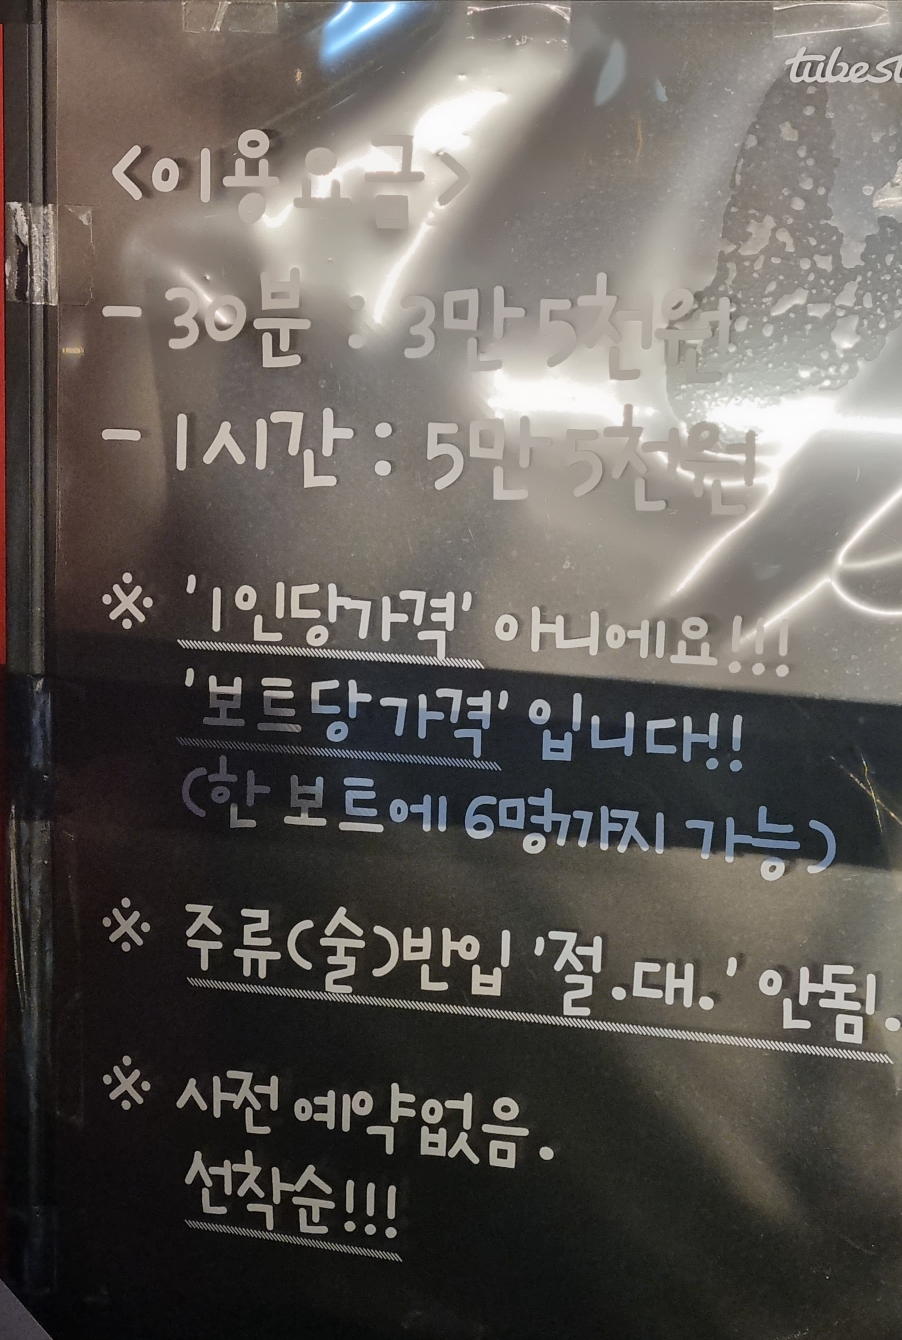 tubest
<이용요금>
- 30분 : 3만 5천원
- 1시간 : 5만 5천원
※ '1인당가격' 아니에요!!!
'보트당 가격' 입니다!!
(한 보트에 6명까지 가능)
※ 주류(술)반입 '절.대.' 안됨.
※ 사전 예약없음.
선착순!!!